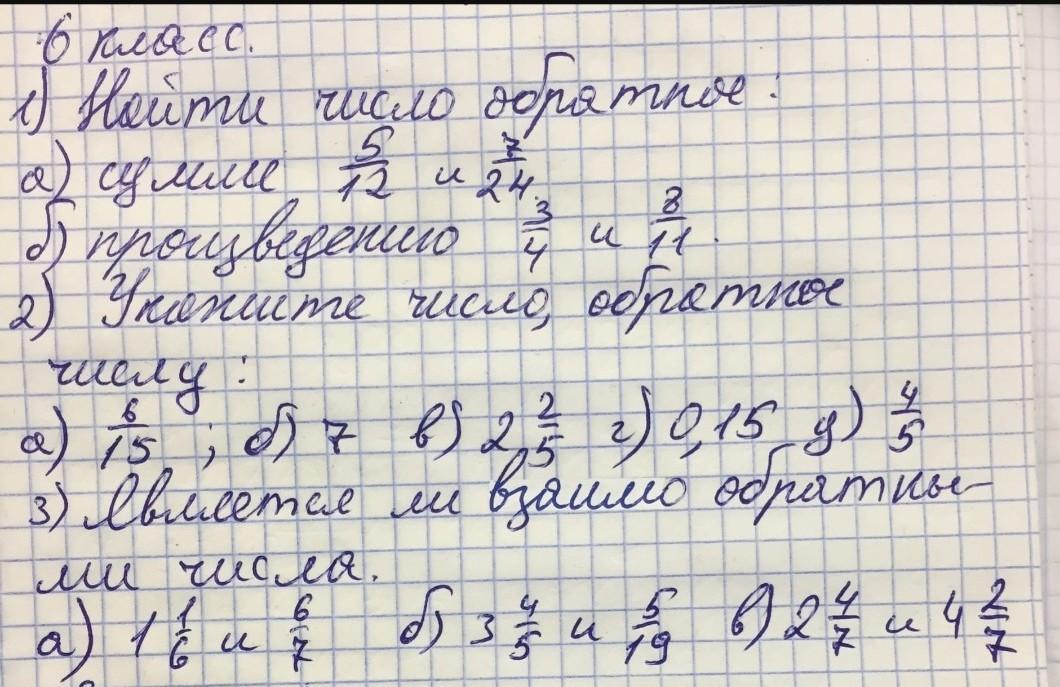 6 класс.
1) Найти число обратное:
а) сумме 5/12 и 7/24.
б) произведению 3/4 и 8/11.
2) Укажите число, обратное
числу:
а) 6/15; б) 7 в) 2 2/5 г) 0,15 д) 4/5
3) Является ли взаимо обратны-
ми числа.
а) 1 1/6 и 6/7 б) 3 4/5 и 5/19 в) 2 4/7 и 4 2/7